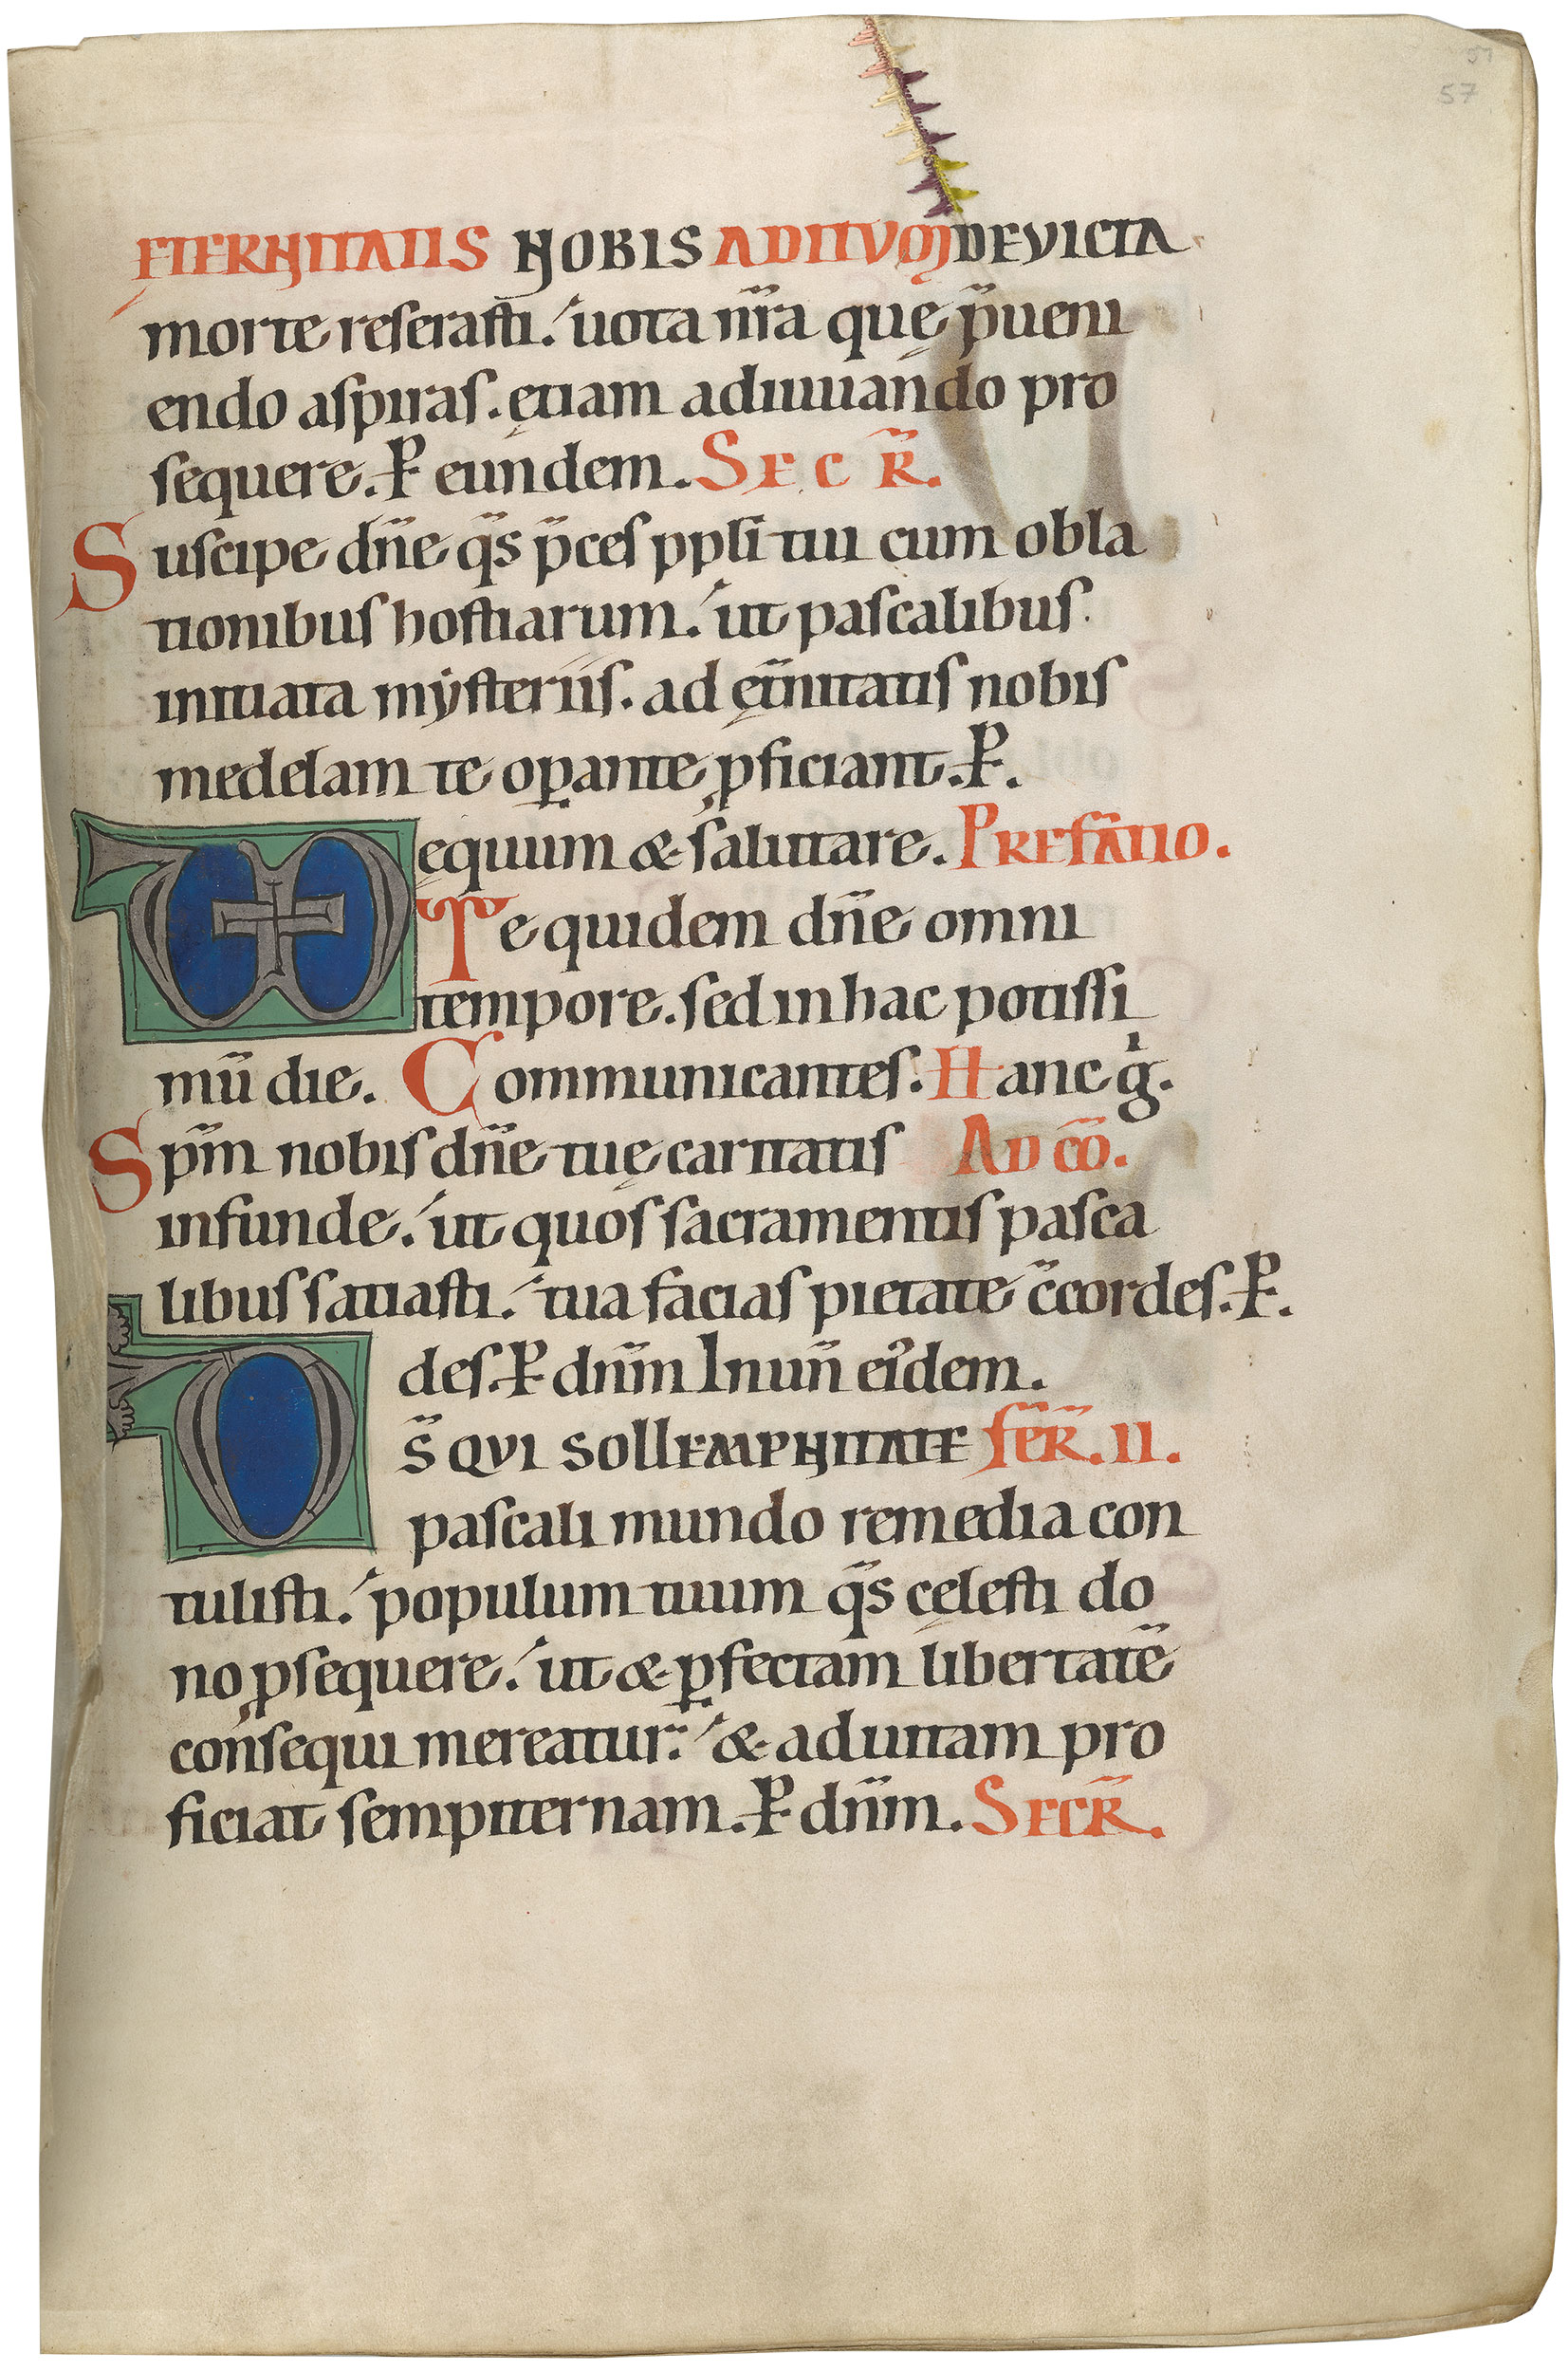 57
57
ETERNITATIS NOBIS ADITVM DEVICTA
morte reserasti. uota nr̄a quę p̄ueni
endo aspiras. ętiam adiuuando pro
sequere. P eundem. SECR̄.
Suscipe dn̄e q̄s p̄ces ppli tui cum obla
tionibus hostiarum. ut pascalibus.
initiata mẏsteriis. ad ęt̄nitatis nobis
medelam te oꝑante ꝓficiant. P.
ęquum & salutare. PREFĀTIO.
Te quidem dn̄e omni
tempore. sed in hac potissi
mū die. Communicantes. Hanc g.
Spm̄ nobis dn̄e tuę caritatis AD CŌ.
infunde. ut quos sacramentis pasca
libus satiasti. tua facias pietate c̄cordes. P.
des. P dnm̄ In un̄ eidem.
D s̄ QVI SOLLEMPNITATE FER̄. II.
pascali mundo remedia con
tulisti. populum tuum q̄s cęlesti do
no ꝓsequere. ut & ꝑfectam libertatē
consequi mereatur. & ad uitam pro
ficiat sempiternam. P dnm̄. SECR̄.